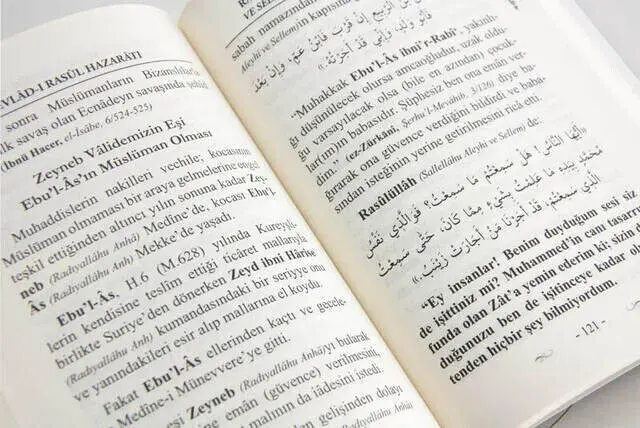 EVLÂD-I RASÛL HAZARÂTI
sonra Müslümanların Bizanslılarla
ilk savaş olan Ecnâdeyn savaşında şehid
(İbnü Hacer, el-İsâbe, 6/524-525)
Zeyneb Vâlidemizin Eşi
Ebu'l-Âs'ın Müslüman Olması
Muhaddislerin nakilleri vechile; kocasının
Müslüman olmaması bir araya gelmelerine engel
teşkil ettiğinden altıncı yılın sonuna kadar Zey-
neb (Radıyallâhu Anhâ) Medîne'de, kocası Ebu'l-
Âs (Radıyallâhu Anh) Mekke'de yaşadı.
Ebu'l-Âs, H.6 (M.628) yılında Kureyşli-
lerin kendisine teslim ettiği ticâret mallarıyla
birlikte Suriye'den dönerken Zeyd ibni Hârise
(Radıyallâhu Anh) kumandasındaki bir seriyye onu
ve yanındakileri esir alıp mallarına el koydu.
Fakat Ebu'l-Âs ellerinden kaçtı ve gece-
Medîne-i Münevvere'ye gitti.
eşi Zeyneb (Radıyallâhu Anhâ)yı bularak
ine emân (güvence) verilmesini,
malının da iâdesini istedi.
gelişinden dolayı
(Radıyallâhu Anhâ)
VE SELLEM
sabah namazından
Aleyhi ve Sellem)in kapısın
"Muhakkak Ebu'l-Âs ibni'r-Rabî', yakınlı-
ğı düşünülecek olursa amcaoğludur, uzaklı-
ğı varsayılacak olsa (bile en azından) çocuk-
lar(ım)ın babasıdır. Şüphesiz ben ona emân ver-
dim." (ez-Zürkânî, Şerhu'l-Mevâhib, 3/126) diye ba-
ğırarak ona güvence verdiğini bildirdi ve babası-
ndan isteğinin yerine getirilmesini ricâ etti.
Rasûlüllâh (Sallellâhu Aleyhi ve Sellem) de:
«أَيُّهَا النَّاسُ! هَلْ سَمِعْتُمْ مَا سَمِعْتُ؟ فَوَالَّذِي نَفْسُ
مُحَمَّدٍ بِيَدِهِ مَا عَلِمْتُ بِشَيْءٍ مِمَّا كَانَ، حَتَّى سَمِعْتُ
الَّذِي سَمِعْتُمْ، قَدْ أَجَرْنَا مَنْ أَجَارَتْ زَيْنَبُ»
"Ey insanlar! Benim duyduğum sesi siz
de işittiniz mi? Muhammed'in canı tasarru-
funda olan Zât'a yemin ederim ki; sizin
duğunuzu ben de işitinceye kadar o
tenden hiçbir şey bilmiyordum.
- 121 -